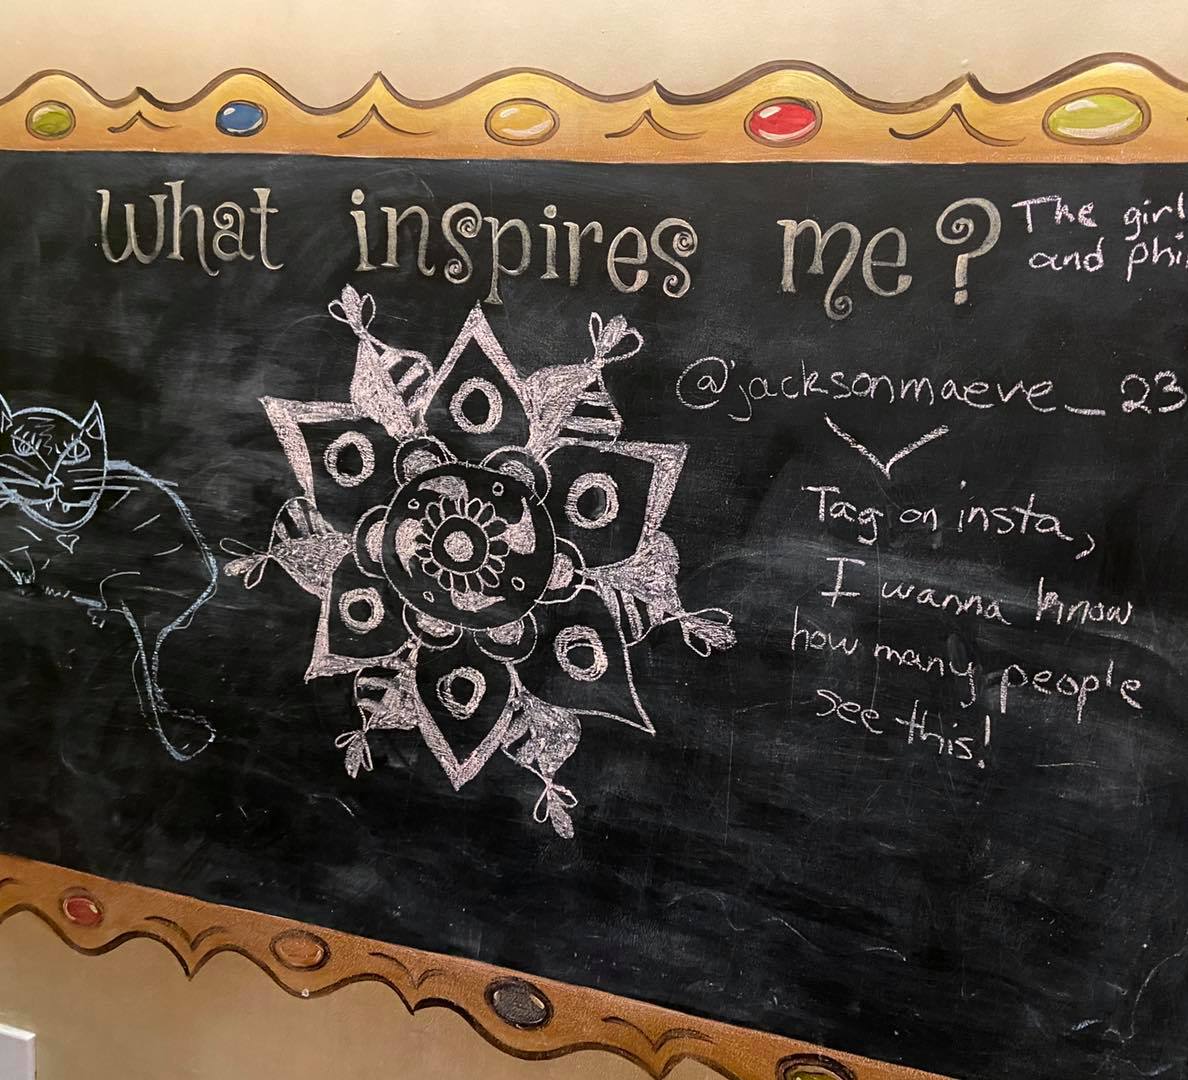 What inspires me?
The girl
and phi
@jacksonmaeve_23
Tag on insta,
I wanna know
how many people
see this!